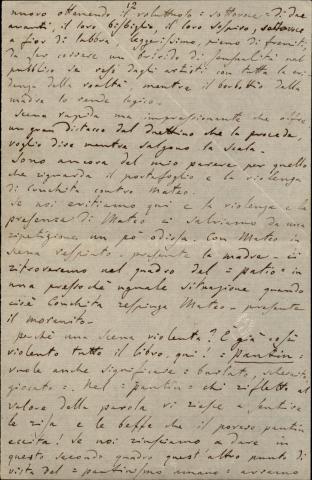 12
nuovo ottenendo il voluttuoso = sottovoce = di due
amanti, il loro bisbiglio, il loro sospiro, sottovoce
a fior di labbra leggerissimo, pieno di fremiti,
da far correre un brivido di sensualità nel
pubblico se reso dagli artisti con tutta la evi-
denza della realtà, mentre il borbottio della
madre lo rende logico.
Scena rapida ma impressionante che offre
un gran distacco dal duettino che la precede,
voglio dire mentre salgono la scala.
Sono ancora del mio parere per quello
che riguarda il portafoglio e la violenza
di Conchita contro Mateo.
Se noi evitiamo qui e la violenza e la
presenza di Mateo ci salviamo da una
ripetizione un pò odiosa. Con Mateo in
scena respinto - presente la madre - ci
ritroveremo nel quadro del = patio = in
una pressochè uguale situazione quando
cioè Conchita respinge Mateo - presente
il morenito -
Perchè una scena violenta? È già così
violento tutto il libro qui! = pantin =
vuole anche significare = burlato, schernito,
giocato =. Nel = pantin = chi rifletta al
valore della parola vi riesce a sentire
le risa e le beffe che il povero pantin
eccita! Se noi rinfiamo a dare in
questo secondo quadro quest'altro punto di
vista del = pantinismo umano = avremo